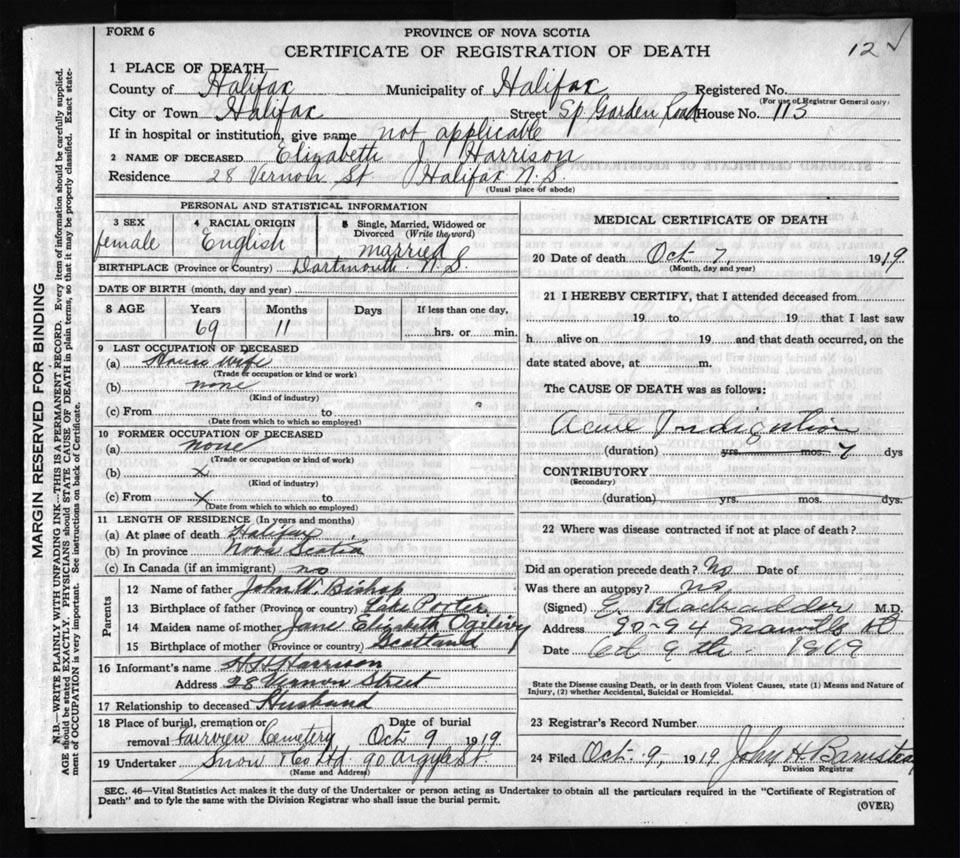 FORM 6
PROVINCE OF NOVA SCOTIA
CERTIFICATE OF REGISTRATION OF DEATH
12
1 PLACE OF DEATH—
County of Halifax Municipality of Halifax Registered No.
(For use of Registrar General only)
City or Town Halifax Street Sp Garden Road House No. 113
If in hospital or institution, give name not applicable
2 NAME OF DECEASED Elizabeth J Harrison
Residence 28 Vernon St Halifax N.S.
(Usual place of abode)
PERSONAL AND STATISTICAL INFORMATION
3 SEX 4 RACIAL ORIGIN 5 Single, Married, Widowed or
Divorced (Write the word)
female English married
BIRTHPLACE (Province or Country) Dartmouth N.S.
DATE OF BIRTH (month, day and year)
8 AGE Years Months Days If less than one day,
69 11 hrs. or min.
9 LAST OCCUPATION OF DECEASED
(a) House wife
(Trade or occupation or kind or work)
(b) none
(Kind of industry)
(c) From to
(Date from which to which so employed)
10 FORMER OCCUPATION OF DECEASED
(a) none
(Trade or occupation or kind of work)
(b) x
(Kind of industry)
(c) From x to
(Date from which to which so employed)
11 LENGTH OF RESIDENCE (In years and months)
(a) At place of death Halifax
(b) In province Nova Scotia
(c) In Canada (if an immigrant) no
Parents
12 Name of father John W. Bishop
13 Birthplace of father (Province or country) Lake Porter
14 Maiden name of mother Jane Elizabeth Ogilivy
15 Birthplace of mother (Province or country) Scotland
16 Informant's name H H Harrison
Address 28 Vernon Street
17 Relationship to deceased Husband
18 Place of burial, cremation or Date of burial
removal Fairview Cemetery Oct 9 1919
19 Undertaker Snow & Co Ltd. 90 Argyle St.
(Name and Address)
MEDICAL CERTIFICATE OF DEATH
20 Date of death Oct 7, 1919
(Month, day and year)
21 I HEREBY CERTIFY, that I attended deceased from
19 to 19 that I last saw
h alive on 19 and that death occurred, on the
date stated above, at m.
The CAUSE OF DEATH was as follows:
Acute Indigestion
(duration) yrs. mos. 7 dys
CONTRIBUTORY
(Secondary)
(duration) yrs. mos. dys.
22 Where was disease contracted if not at place of death?
Did an operation precede death? No Date of
Was there an autopsy? no
(Signed) M.D.
Address 90-94 Granville St
Date Oct 9th 1919
State the Disease causing Death, or in death from Violent Causes, state (1) Means and Nature of
Injury, (2) whether Accidental, Suicidal or Homicidal.
23 Registrar's Record Number
24 Filed Oct. 9, 1919 John H Barnstead
Division Registrar
SEC. 46—Vital Statistics Act makes it the duty of the Undertaker or person acting as Undertaker to obtain all the particulars required in the "Certificate of Registration of
Death" and to fyle the same with the Division Registrar who shall issue the burial permit.
(OVER)
MARGIN RESERVED FOR BINDING
N.B.—WRITE PLAINLY WITH UNFADING INK—THIS IS A PERMANENT RECORD. Every item of information should be carefully supplied.
AGE should be stated EXACTLY. PHYSICIANS should STATE CAUSE OF DEATH in plain terms, so that it may be properly classified. Exact state-
ment of OCCUPATION is very important. See instructions on back of Certificate.